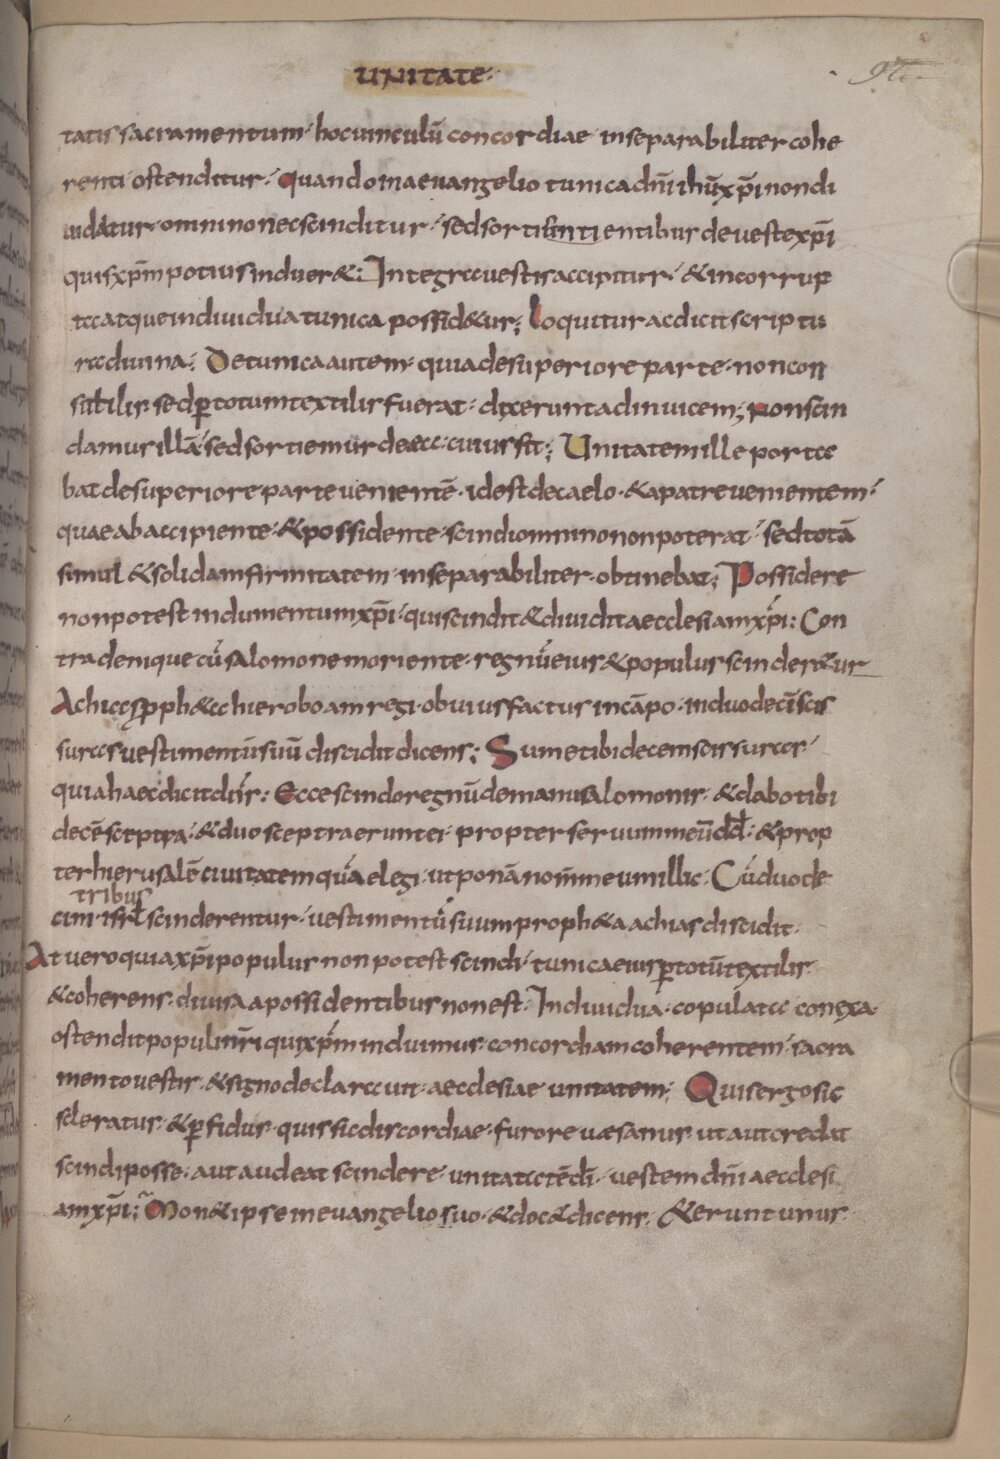 UNITATE·
tatis sacramentum· hoc uinculū concordiae· inseparabiliter cohe
renti· ostenditur· quando in aeuangelio tunica dn̄i ihū xp̄i non di
uidatur· omnino nec scinditur· sed sortientientibus de ueste xp̄i
quis xp̄m potius induer&; Integra uestis accipitur· & incorrup
ta atque indiuidua tunica possid&ur; Loquitur ac dicit scriptu
ra diuina; De tunica autem· quia de superiore parte· non con
sutilis· sed ꝑ totum textilis fuerat· dixerunt ad inuicem; Non scin
damus illā· sed sortiemur de ea· cuius sit; Unitatem ille porta
bat de superiore parte uenientē· id est de caelo· & a patre uenientem·
quae ab accipiente· & possidente· scindi omnino non poterat· sed totā
simul & solidam firmitatem· inseparabiliter· obtinebat; Possidere
non potest indumentum xp̄i· qui scindit & diuidit aecclesiam xp̄i: Con
tra denique cū salomone moriente· regnū eius & populus scinder&ur
Achias ꝓph&a hieroboam regi· obuius factus in cāpo· in duodecī scis
suras uestimentū suū discidit dicens; Sume tibi decem scissuras·
quia haec dicit dn̄s: Ecce scindo regnū de manu salomonis· & dabo tibi
decē sceptra· & duo sceptra erunt ei· propter seruum meū dd̄· & prop
ter hierusalē ciuitatem quā elegi· ut ponā nom̄ meum illic· Cū duode
tribus
cim· isrł scinderentur· uestimentū suum proph&a achias discidit·
At uero quia xp̄i populus non potest scindi· tunica eius ꝑ totū textilis
& coherens· diuisa a possidentibus non est· Indiuidua· copulata· conexa·
ostendit populi nr̄i qui xp̄m induimus· concordiam coherentem· sacra
mento uestis· & signo declarauit· aecclesiae unitatem; Quis ergo sic
sceleratus· & ꝑfidus· quis sic discordiae· furore uæsanus· ut aut credat
scindi posse· aut audeat scindere· unitatē dī· uestem dn̄i aecclesi
am xp̄i; Mon& ipse in euangelio suo· & doc& dicens· & erunt unus